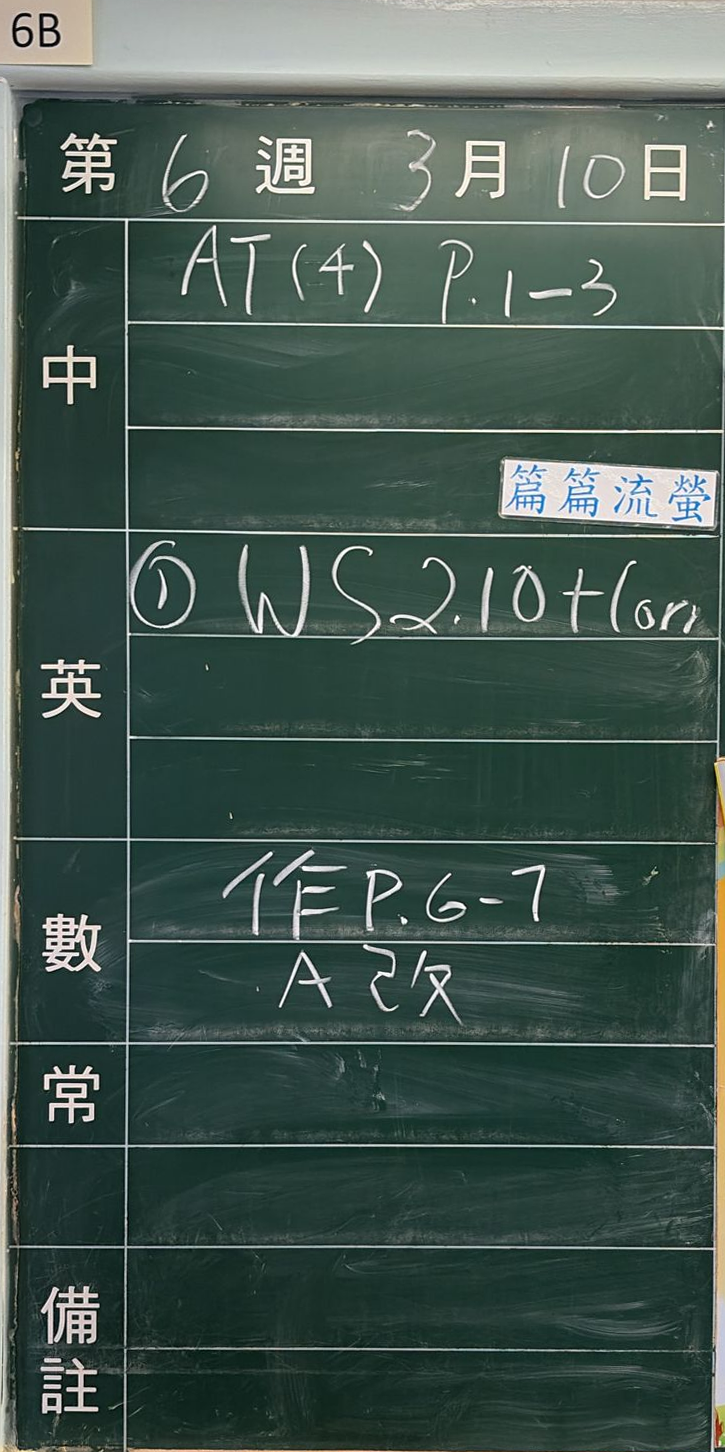 6B
第 6 週 3月 10日
中
AT(4) P.1-3
篇篇流螢
英
① WS2.10+Corr
數
作P.6-7
A改
常
備註